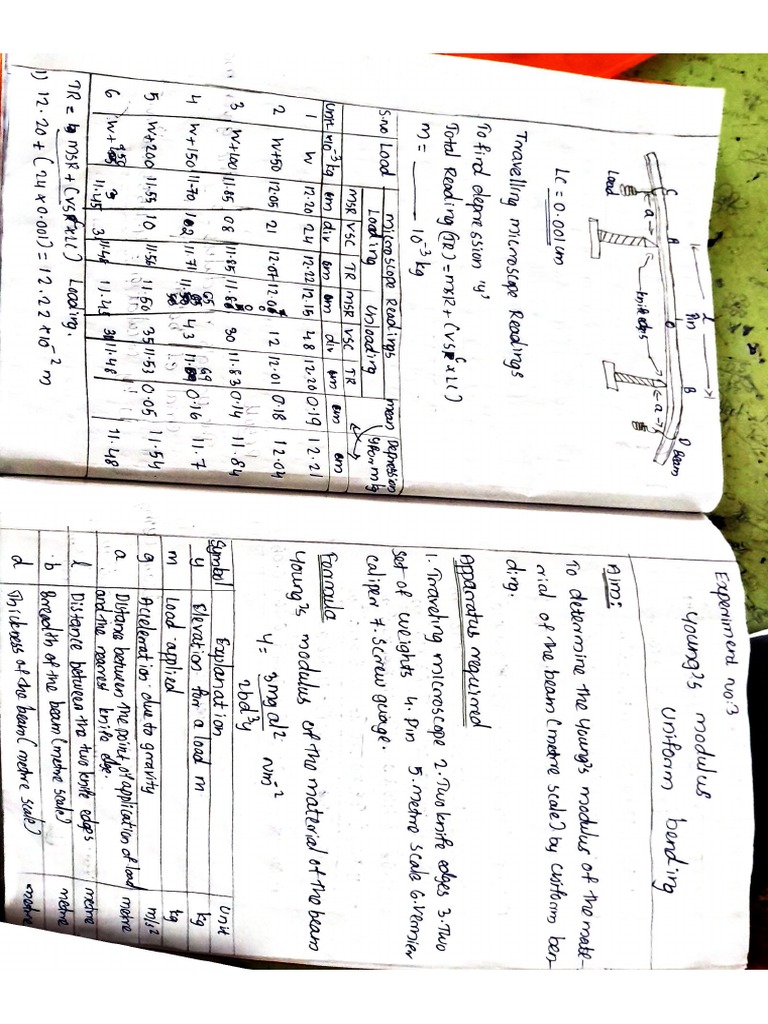 l
Pin
C
a
A
O
B
a
D
Beam
Load
knife edges
LC = 0.001cm
Travelling microscope Readings
To find depression 'y'
Total Reading (TR) = MSR + (VSC x LC)
m = ____ 10⁻³ kg
S.no Load microscope Readings mean Depression
Loading Unloading y for m kg
MSR VSC TR MSR VSC TR
Unit x10⁻³ kg cm div cm cm div cm cm cm
1 W 12.20 24 12.22 12.15 48 12.20 0.19 12.21
2 W+50 12.05 21 12.07 12.00 12 12.01 0.18 12.04
3 W+100 11.85 08 11.85 11.80 30 11.83 0.14 11.84
4 W+150 11.70 02 11.71 11.65 43 11.69 0.16 11.7
5 W+200 11.55 10 11.56 11.50 35 11.53 0.05 11.54
6 W+250 11.45 3 11.48 11.45 31 11.48 11.48
TR = MSR + (VSC x LC) Loading.
1) 12.20 + (24 x 0.001) = 12.22 x 10⁻² m
Experiment no:3
Young's modulus
Uniform bending
Aim:
To determine the young's modulus of the mate-
rial of the beam (metre scale) by uniform ben-
ding.
Apparatus required
1. Traveling microscope 2. Two knife edges 3. Two
set of weights 4. Pin 5. metre scale 6. Vernier
caliper 7. Screw guage.
Formula
Young's modulus of the material of the beam
Y = 3mgal² / 2bd³y Nm⁻²
Symbol Explanation Unit
y Elevation for a load m kg
m Load applied kg
g Acceleration due to gravity m/s²
a Distance between the point of application of load metre
and the nearest knife edge.
l Distance between the two knife edges metre
b Breadth of the beam (metre scale) metre
d Thickness of the beam (metre scale) metre